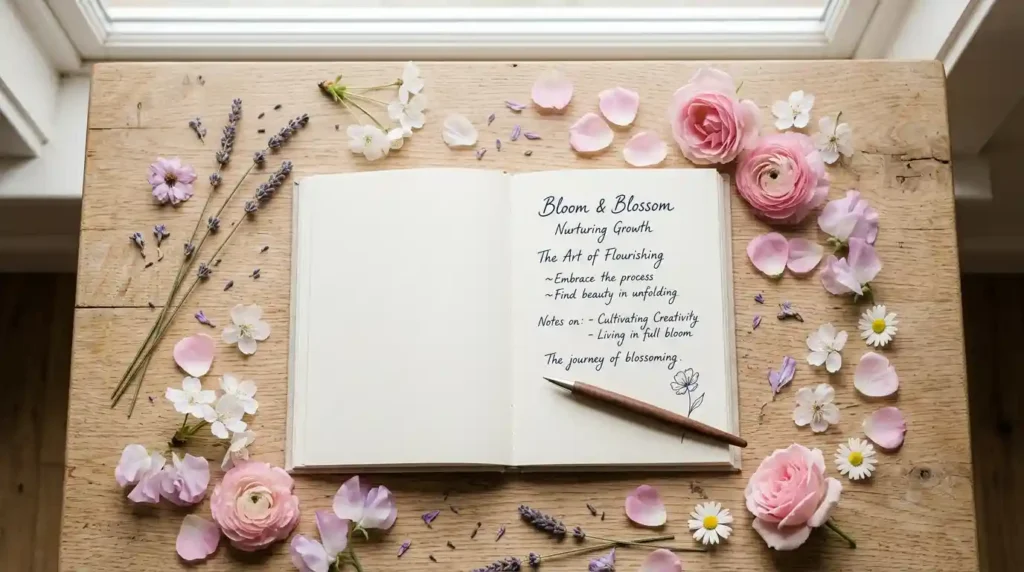 Bloom & Blossom
Nurturing Growth
The Art of Flourishing
~Embrace the process
~Find beauty in unfolding
Notes on: - Cultivating Creativity
- Living in full bloom
The journey of blossoming.